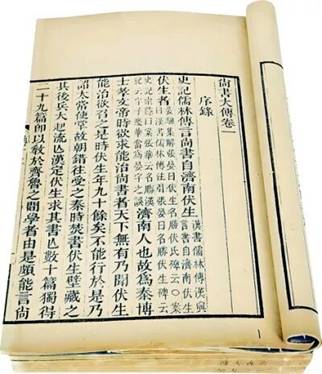 尚書大傳卷一
序錄
史記儒林傳言尚書自濟南伏生
漢書儒林傳漢興
言尚書自濟南伏生
伏生者
濟南人也故爲秦博
士孝文帝時欲求能治尚書者天下無有乃聞伏生
能治欲召之是時伏生年九十餘矣不能行於是乃
詔太常使掌故朝錯往受之秦時焚書伏生壁藏之
其後兵大起流亡漢定伏生求其書亡數十篇獨得
二十九篇卽以敎於齊魯之閒學者由是頗能言尚